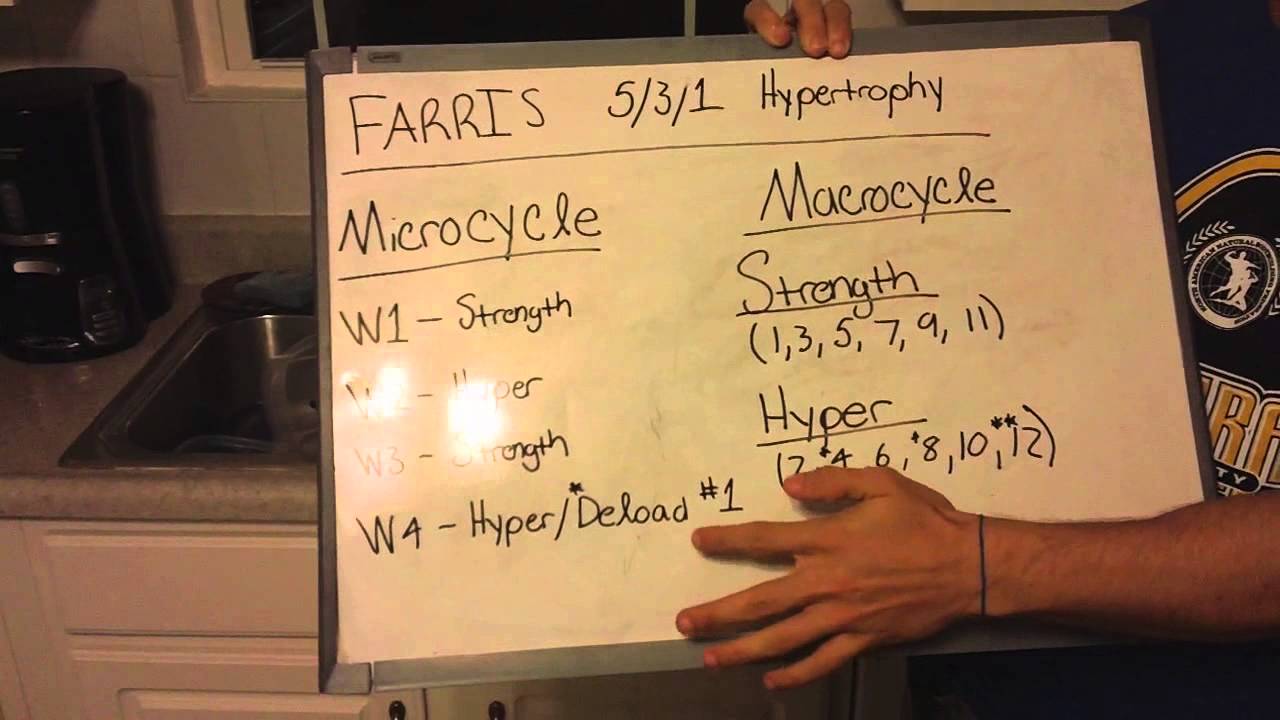 FARRIS 5/3/1 Hypertrophy
Microcycle
W1 - Strength
W2 - Hyper
W3 - Strength
W4 - Hyper/*Deload #1
Macrocycle
Strength
(1, 3, 5, 7, 9, 11)
Hyper
(2, *4, 6, *8, 10, **12)
AMERICAN NATURAL